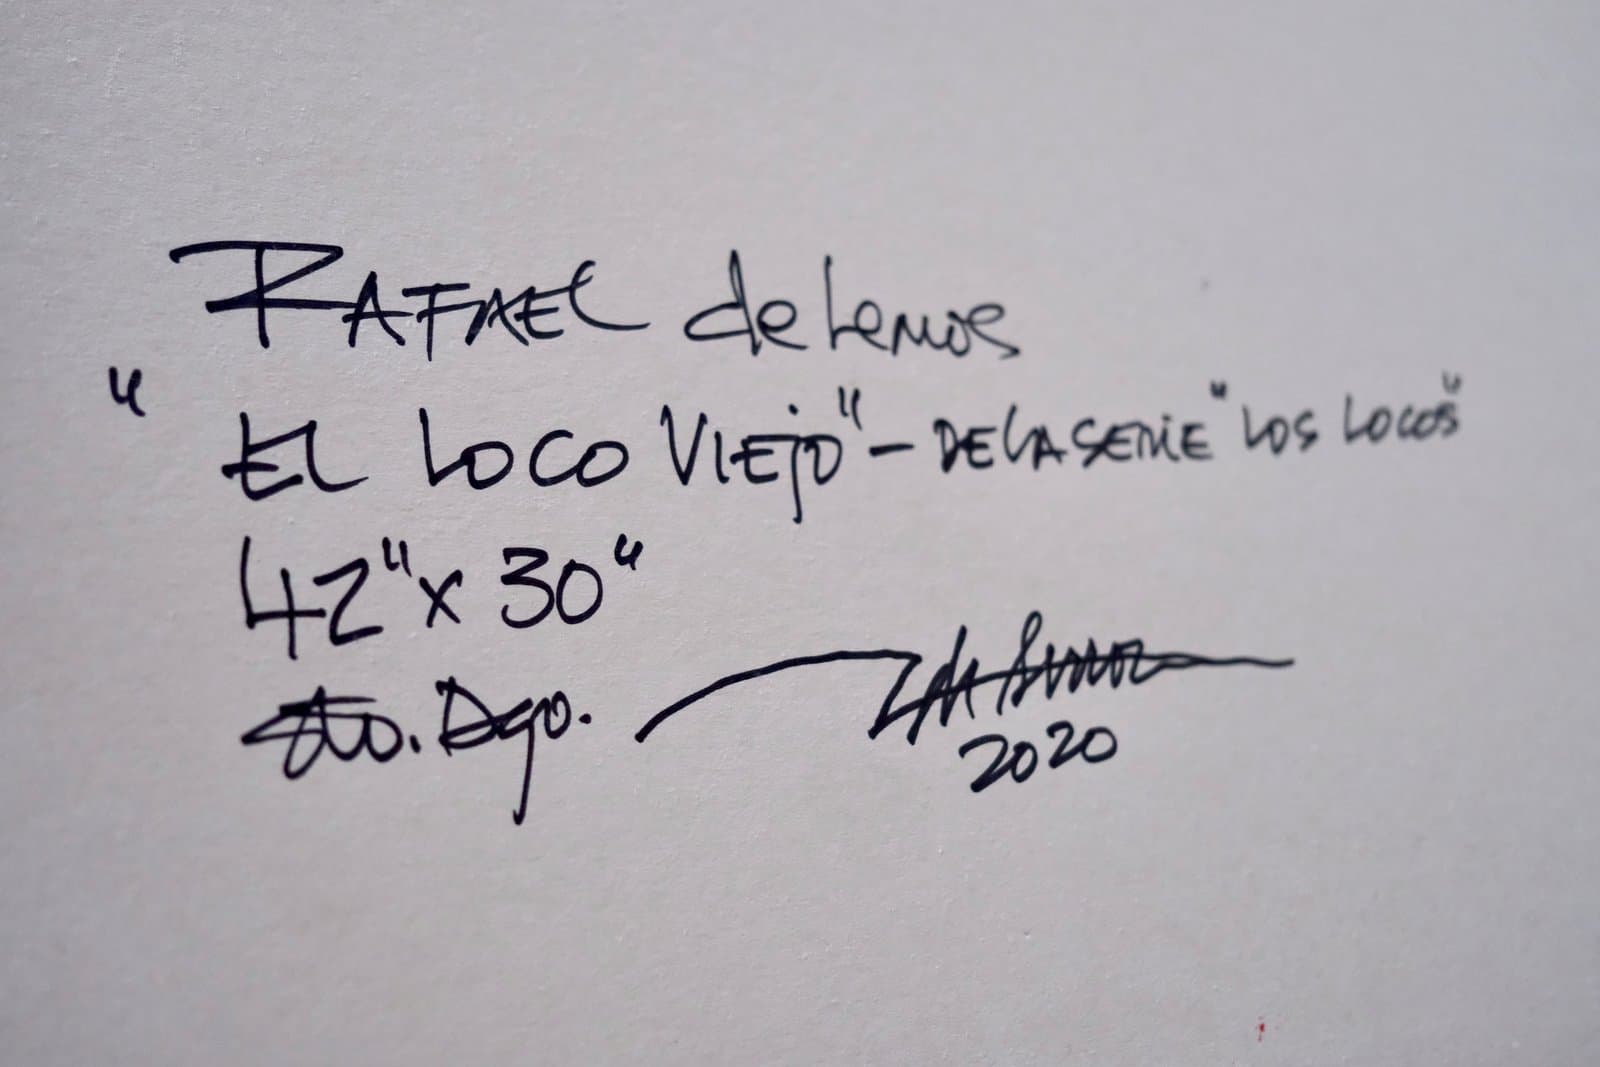 RAFAEL de Lemos
"EL LOCO VIEJO" - DE LA SERIE "LOS LOCOS"
42" x 30"
Sto. Dgo.
2020